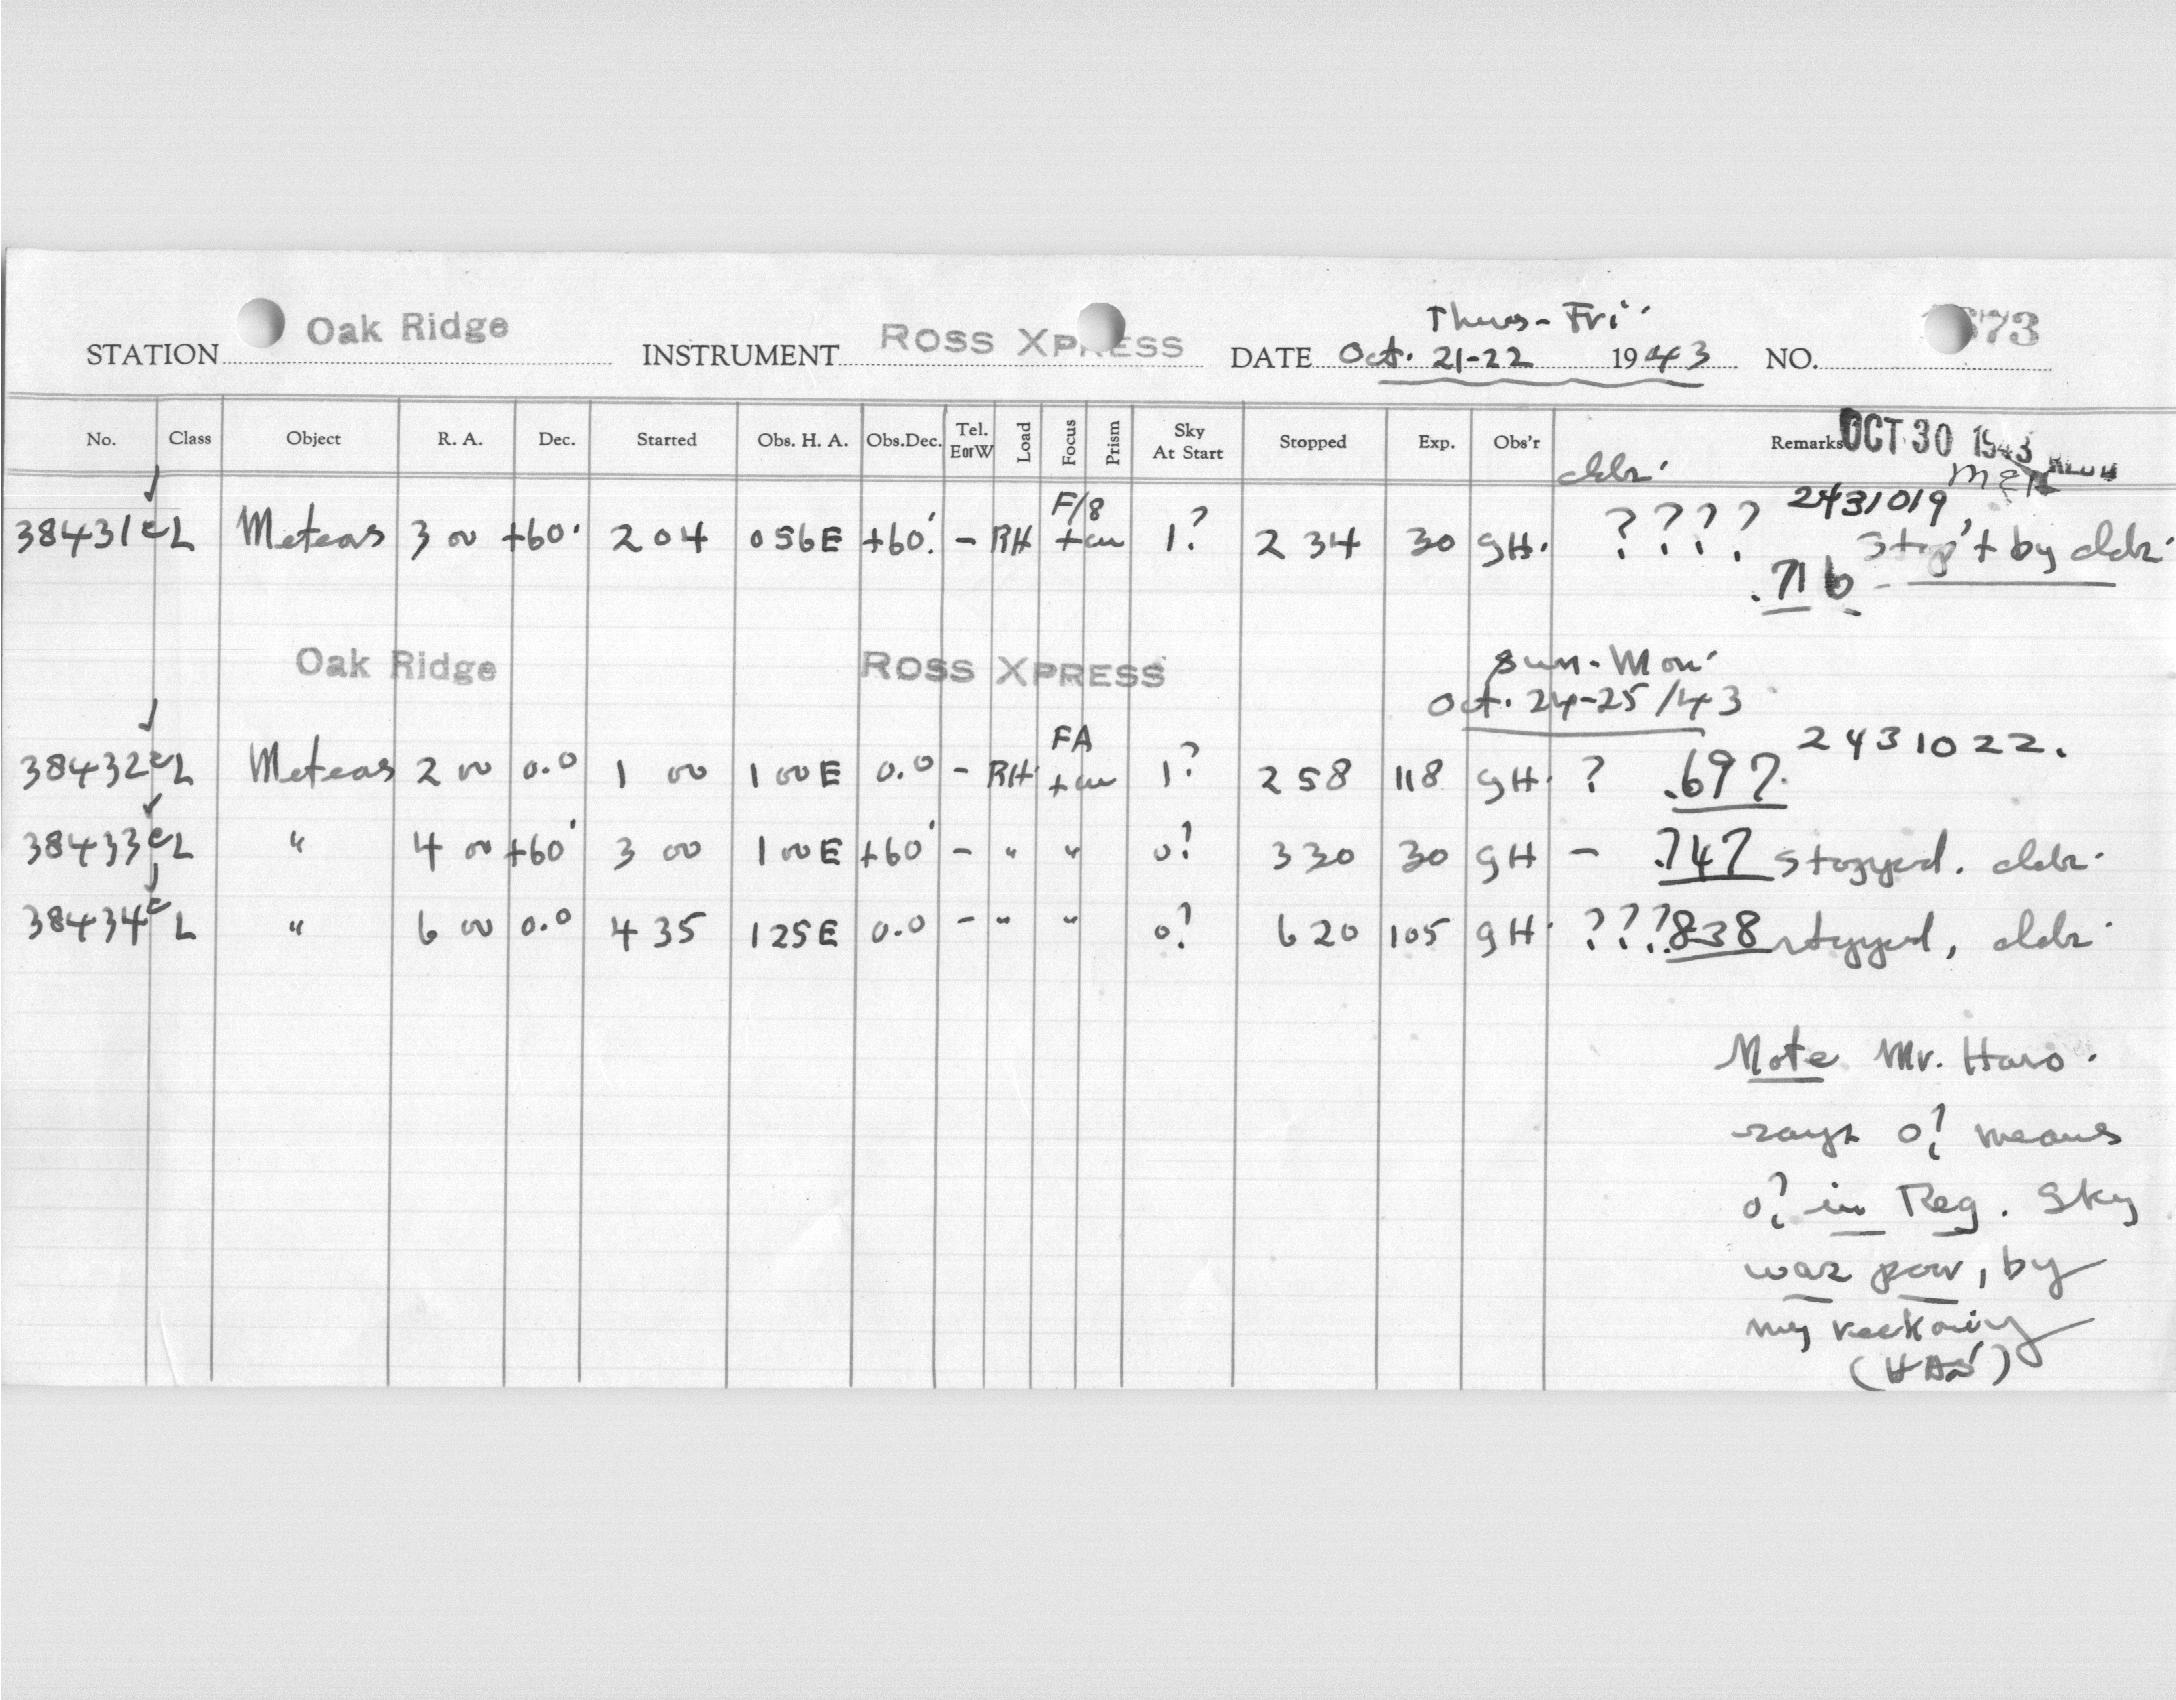 Thurs-Fri.
STATION Oak Ridge INSTRUMENT ROSS XPRESS DATE Oct. 21-22 1943 NO. 73
No. Class Object R. A. Dec. Started Obs. H. A. Obs.Dec. Tel. EorW Load Focus Prism Sky At Start Stopped Exp. Obs'r Remarks OCT 30 1943
cldr.
2431019.
38431 c L Meteors 3 00 +60° 2 04 0 56E +60° - RH F/8 +cw 1? 2 34 30 GH. ???? Stop't by cldr.
.716
Oak Ridge ROSS XPRESS Sun-Mon.
Oct. 24-25/43
2431022.
38432 c L Meteors 2 00 0.0 1 00 1 00E 0.0 - RH FA +cw 1? 2 58 118 GH. ? .697
38433 c L " 4 00 +60° 3 00 1 00E +60° - " " 0? 3 30 30 GH - .747 stopped. cldr.
38434 c L " 6 00 0.0 4 35 1 25E 0.0 - " " 0? 6 20 105 GH. ??? .838 stopped, cldr.
Note Mr. Haro.
says 0? means
0? in Reg. Sky
was poor, by
my reckoning
(HAS)